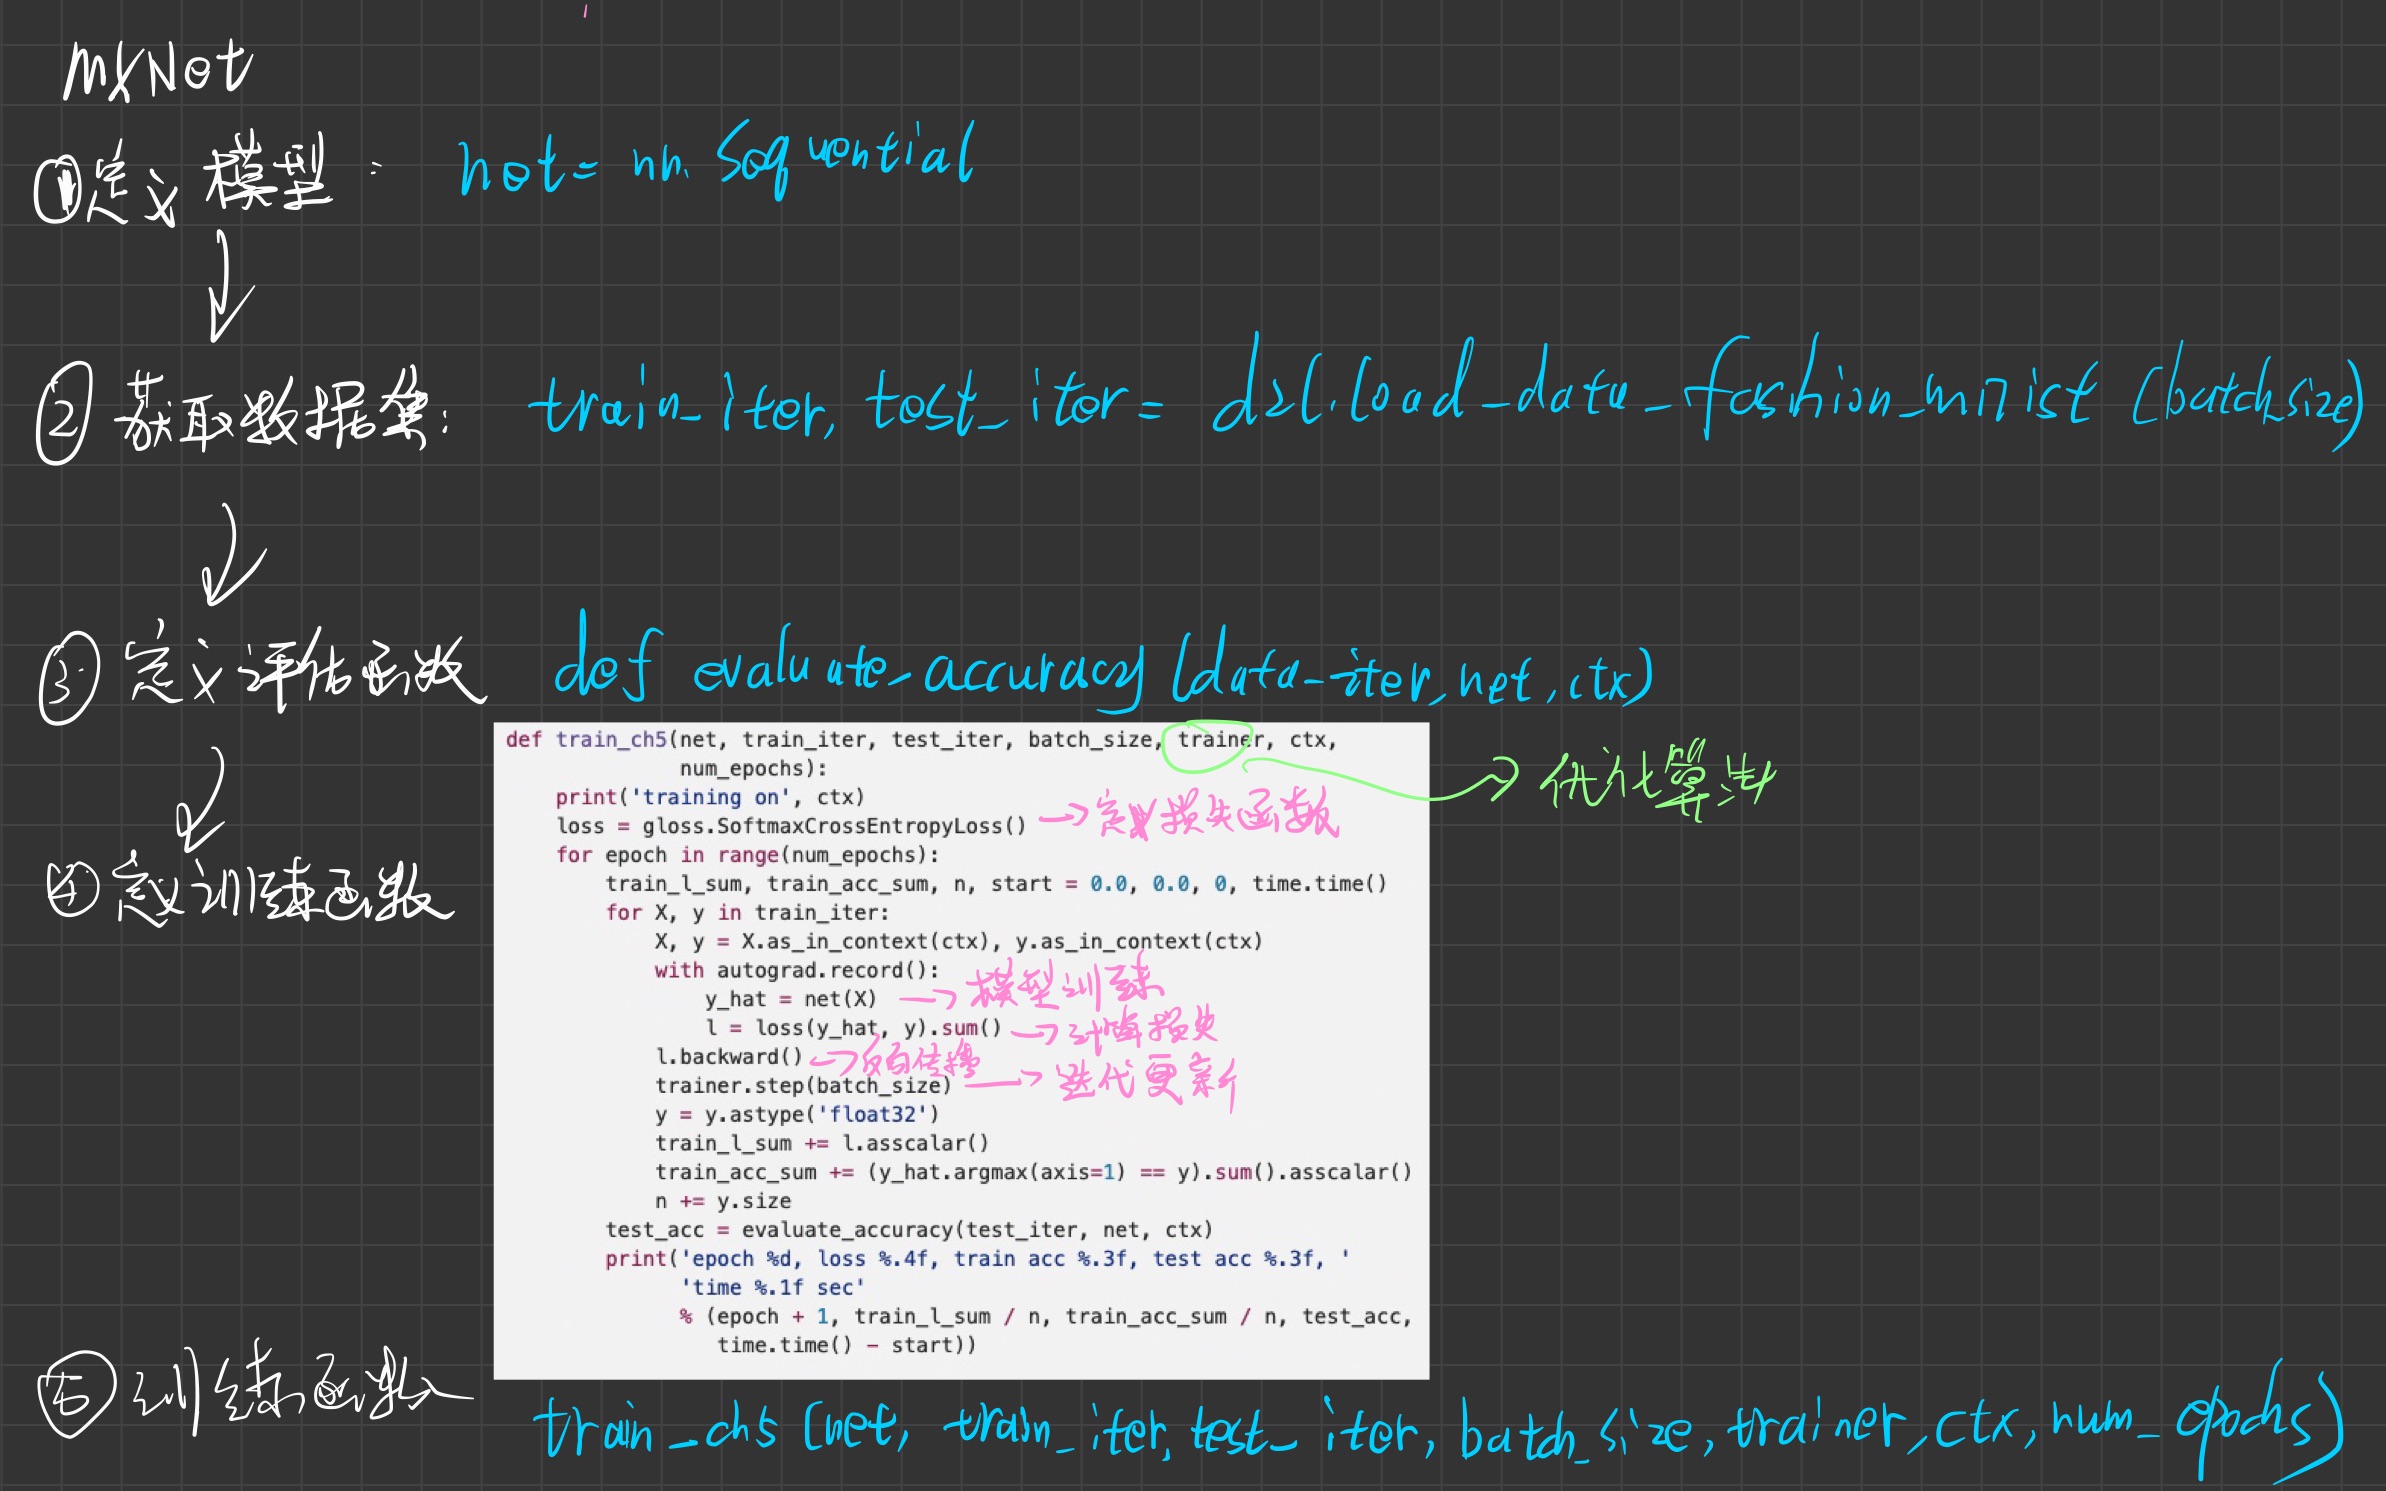 MXNet
①定义模型: net= nn.Sequential
②获取数据集: train_iter, test_iter= d2l.load_data_fashion_mnist (batch_size)
③定义评估函数 def evaluate_accuracy (data_iter, net, ctx)
④定义训练函数
def train_ch5(net, train_iter, test_iter, batch_size, trainer, ctx,
→优化算法
num_epochs):
print('training on', ctx)
loss = gloss.SoftmaxCrossEntropyLoss() →定义损失函数
for epoch in range(num_epochs):
train_l_sum, train_acc_sum, n, start = 0.0, 0.0, 0, time.time()
for X, y in train_iter:
X, y = X.as_in_context(ctx), y.as_in_context(ctx)
with autograd.record():
y_hat = net(X) →模型训练
l = loss(y_hat, y).sum() →计算损失
l.backward() →反向传播
trainer.step(batch_size) →迭代更新
y = y.astype('float32')
train_l_sum += l.asscalar()
train_acc_sum += (y_hat.argmax(axis=1) == y).sum().asscalar()
n += y.size
test_acc = evaluate_accuracy(test_iter, net, ctx)
print('epoch %d, loss %.4f, train acc %.3f, test acc %.3f, '
'time %.1f sec'
% (epoch + 1, train_l_sum / n, train_acc_sum / n, test_acc,
time.time() - start))
⑤训练函数 train_ch5 (net, train_iter, test_iter, batch_size, trainer, ctx, num_epochs)